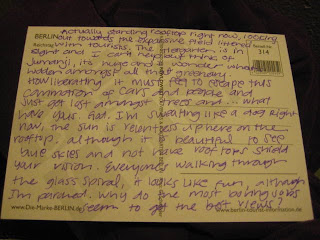 Actually standing rooftop right now, looking
BERLIN out towards the expansive field littered
Reichstag with tourists. The Tiergarten is in
sight and I can't help but think of
314
Jumanji, its huge and I wonder what's
hiden amongst all that greenery.
How liberating it must feel to escape this
canmotion of Cars and people and
just get lost amongst trees and... what
have yous. Gad. I'm sweating like a dog right
now, the sun is relentless up here on the
rooftop. although it is beautiful to see
blue skies and not have roof tops shield
your vision. Everyones walking through
the glass spiral, it looks like fun, although
I'm parched. Why do the most boring jobs
www.Die-Marke-BERLIN.de seem to get the best views!